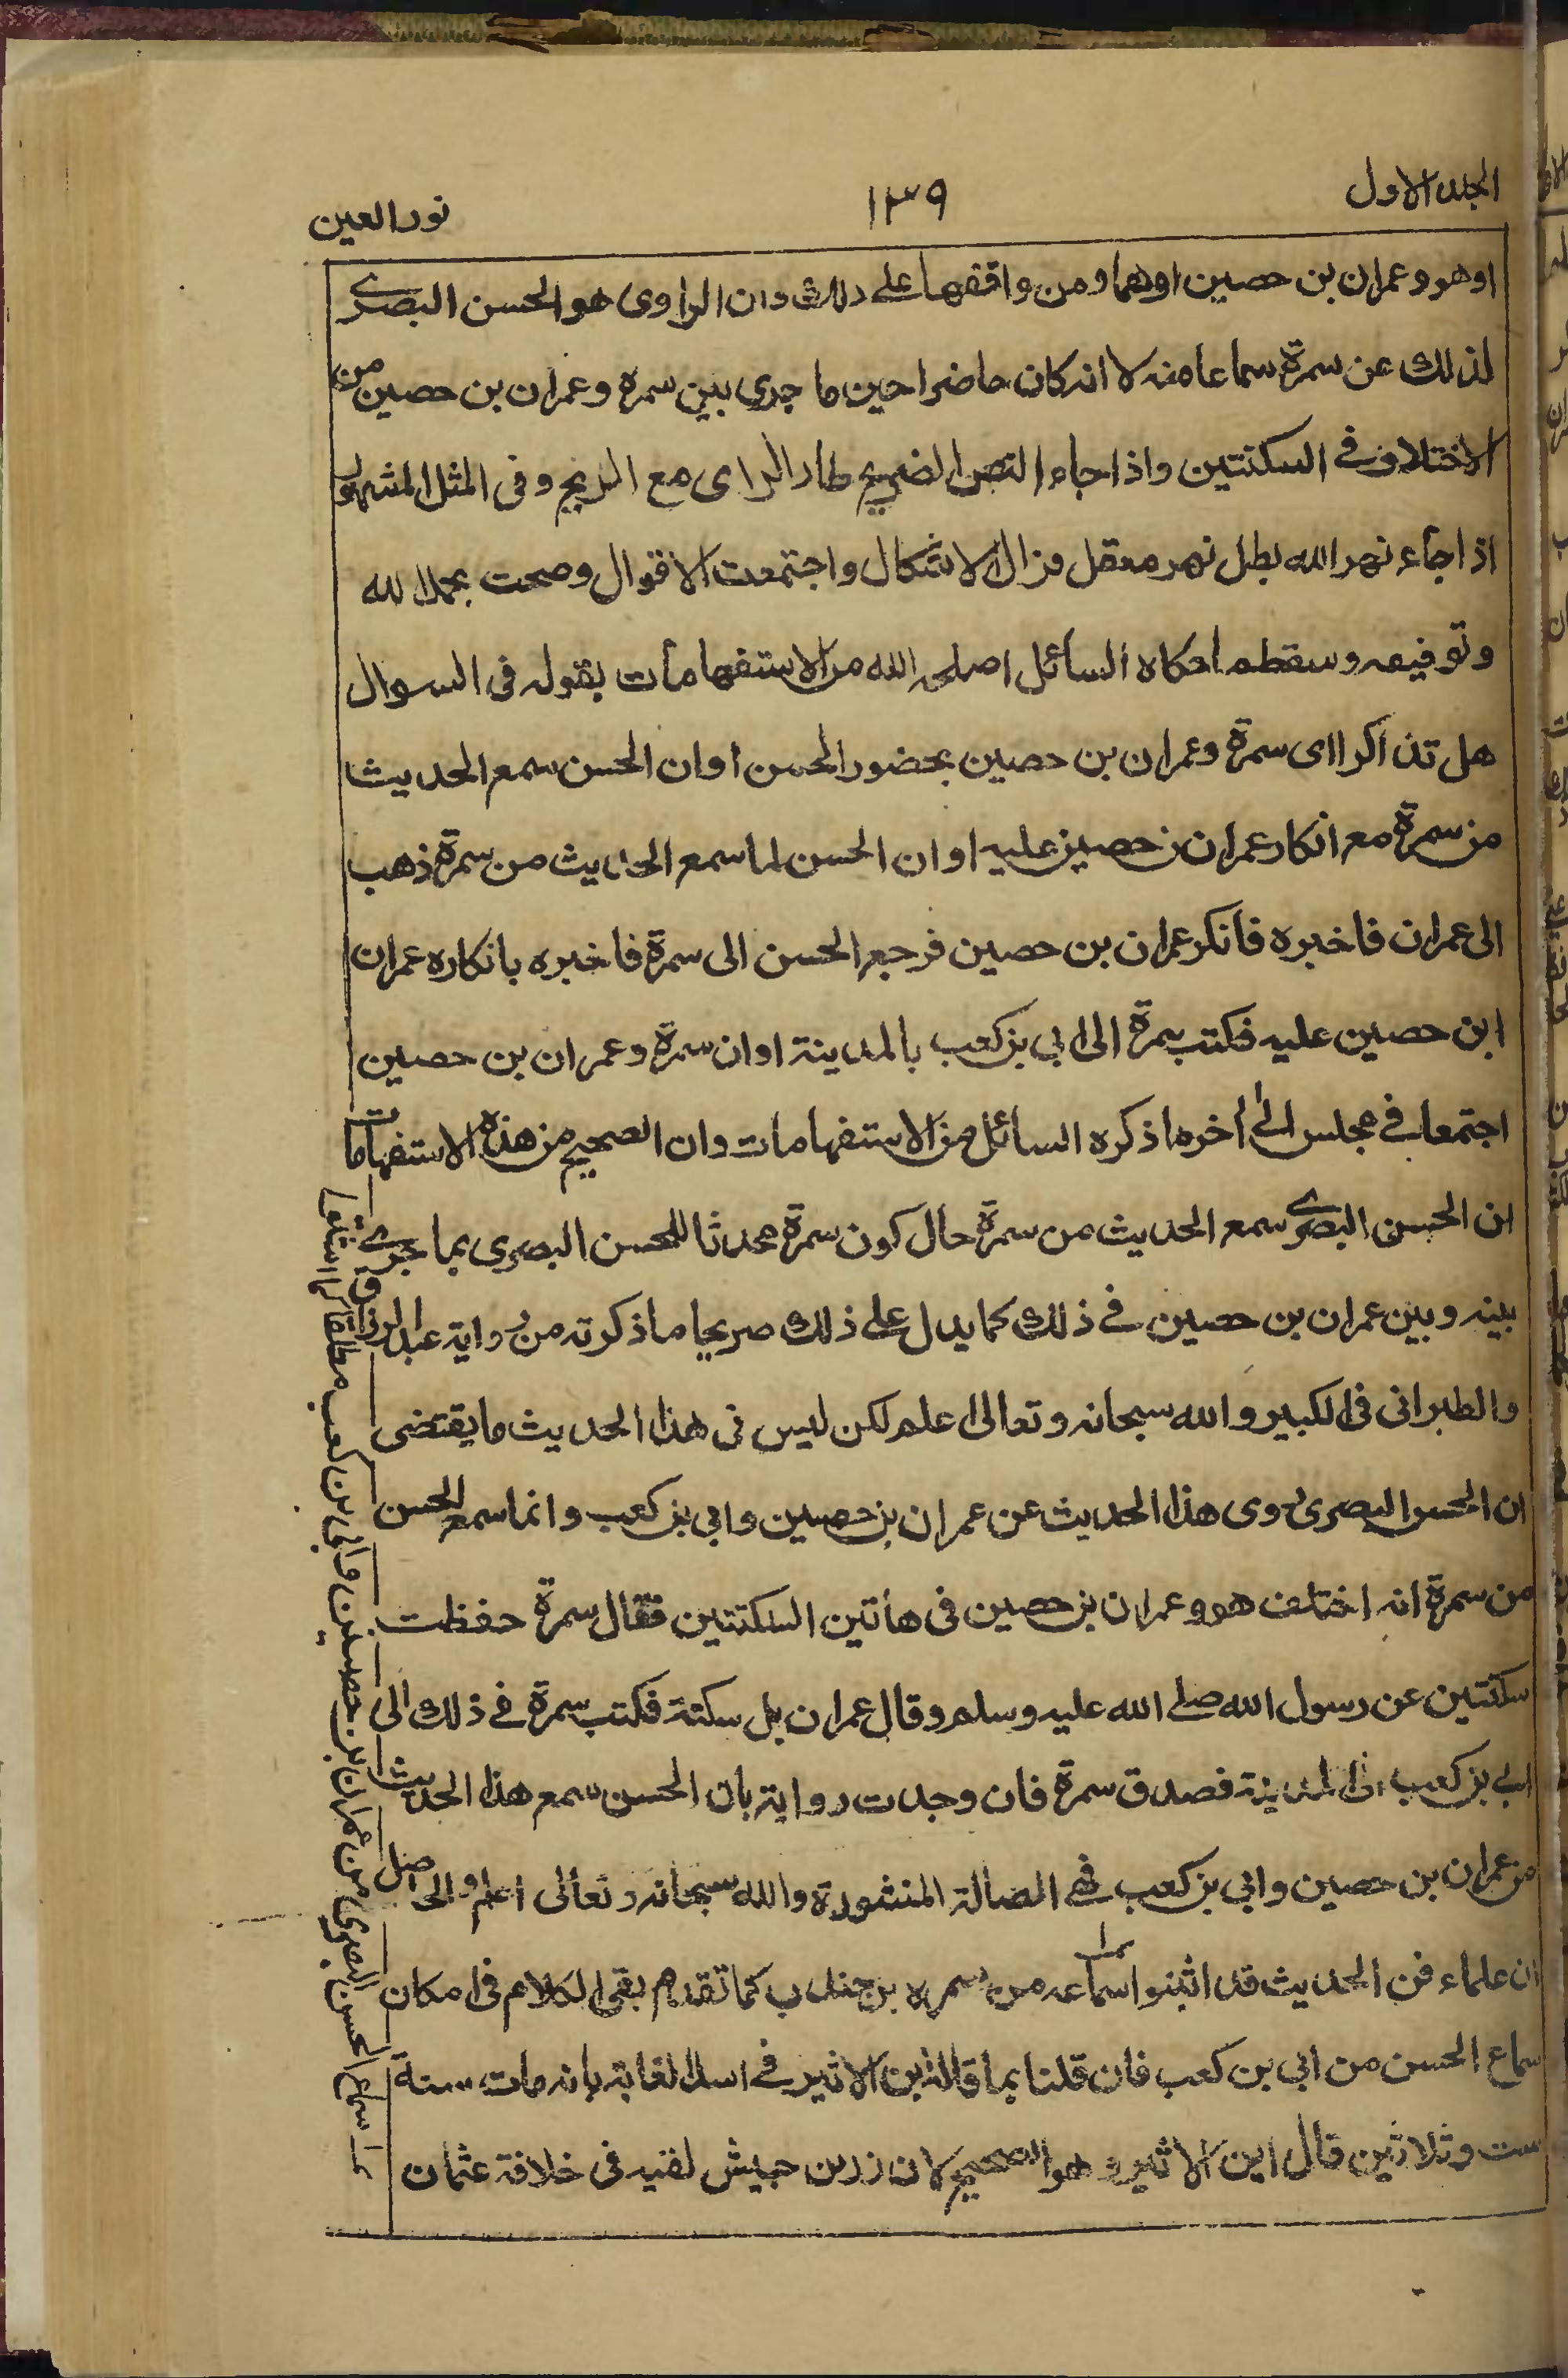 المجلد الاول
١٣٩
نور العين
اوهو وعمران بن حصين اوهما ومن وافقهما على ذلك وان الراوى هو الحسن البصرى
لذلك عن سمرة سماعا منه لا انه كان حاضرا حين ما جرى بين سمرة وعمران بن حصين من
الاختلاف فى السكتتين واذا جاء النص الصريح طار الراى مع الريح وفى المثل المشهور
اذا جاء نهر الله بطل نهر معقل فزال الاشكال واجتمعت الاقوال وصحت بحمد الله
وتوفيقه وسقط ما حكاه السائل اصلحه الله من الاستفهامات بقوله فى السوال
هل تذاكرا اى سمرة وعمران بن حصين بحضور الحسن او ان الحسن سمع الحديث
من سمرة مع انكار عمران بن حصين عليه او ان الحسن لما سمع الحديث من سمرة ذهب
الى عمران فاخبره فانكر عمران بن حصين فرجع الحسن الى سمرة فاخبره بانكاره عمران
ابن حصين عليه فكتب سمرة الى ابي بن كعب بالمدينة او ان سمرة وعمران بن حصين
اجتمعا فى مجلس الى اخر ما ذكره السائل من الاستفهامات وان الصحيح من هذه الاستفهامات
ان الحسن البصرى سمع الحديث من سمرة حال كون سمرة محدثا للحسن البصرى بما جرى
بينه وبين عمران بن حصين فى ذلك كما يدل على ذلك صريحا ما ذكرته من رواية عبد الرزاق
والطبرانى فى الكبير والله سبحانه وتعالى اعلم لكن ليس فى هذا الحديث ما يقتضى
ان الحسن البصرى روى هذا الحديث عن عمران بن حصين وابي بن كعب وانما سمع الحسن
من سمرة انه اختلف هو وعمران بن حصين فى هاتين السكتتين فقال سمرة حفظت
سكتتين عن رسول الله صلى الله عليه وسلم وقال عمران بل سكتة فكتب سمرة فى ذلك الى
ابي بن كعب الى المدينة فصدق سمرة فان وجدت رواية بان الحسن سمع هذا الحديث
من عمران بن حصين وابي بن كعب فهى الضالة المنشودة والله سبحانه وتعالى اعلم والحاصل
ان علماء فن الحديث قد اثبتوا سماعه من سمره بن جندب كما تقدم بقى الكلام فى امكان
سماع الحسن من ابي بن كعب فان قلنا بما قاله ابن الاثير فى اسد الغابة بانه مات سنة
ست وثلاثين قال ابن الاثير وهو الصحيح لان زر بن حبيش لقيه فى خلافة عثمان
سماع الحسن البصرى من عمران بن حصين وابى بن كعب مطلقا